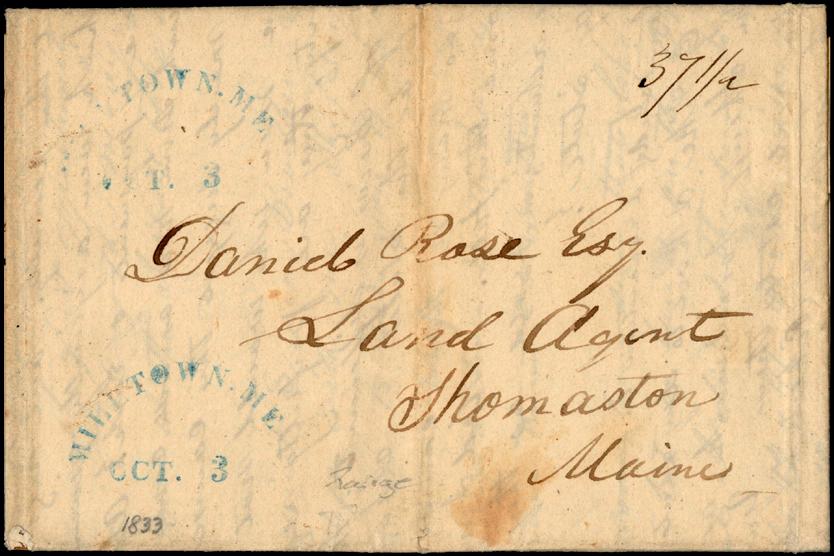 TOWN. ME
T. 3
37 1/2
Daniel Rose Esq.
Land Agent
Thomaston
Maine
MILLTOWN. ME
OCT. 3
1833